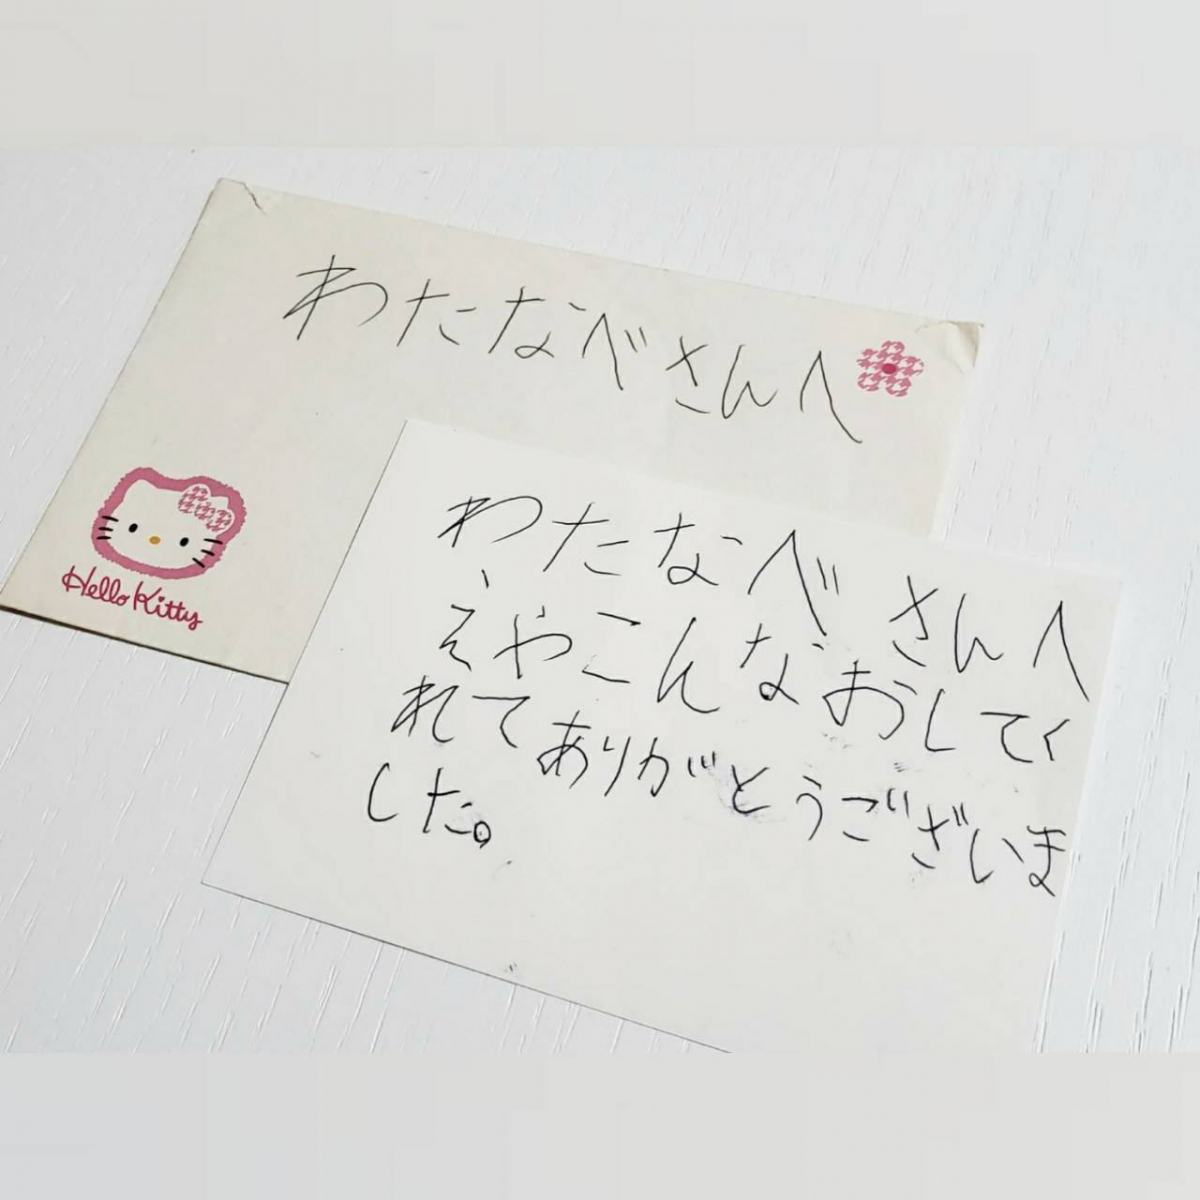 わたなべさんへ
Hello Kitty
わたなべさんへ
えやこんなおしてく
れてありがとうございま
した。